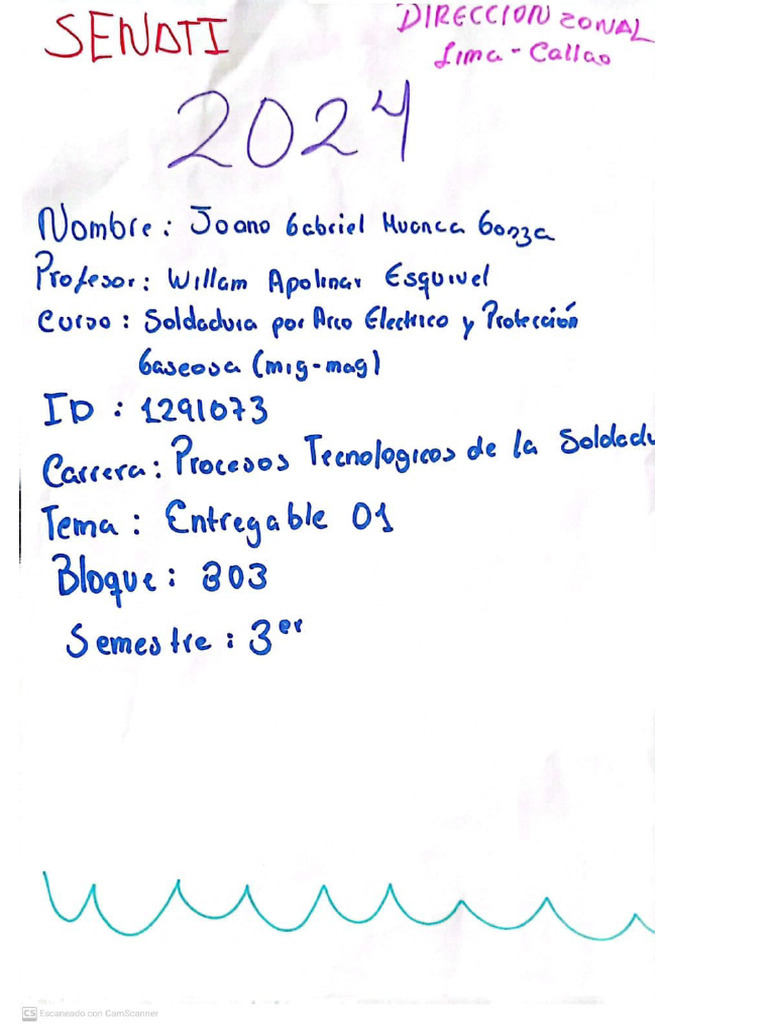 SENATI
DIRECCION ZONAL
Lima - Callao
2024
Nombre: Joano Gabriel Huanca Gonza
Profesor: Willam Apolinar Esquivel
Curso: Soldadura por Arco Electrico y Protección
Gaseosa (mig-mag)
ID: 1291073
Carrera: Procesos Tecnologicos de la Soldadu
Tema: Entregable 01
Bloque: 303
Semestre: 3er
CS Escaneado con CamScanner